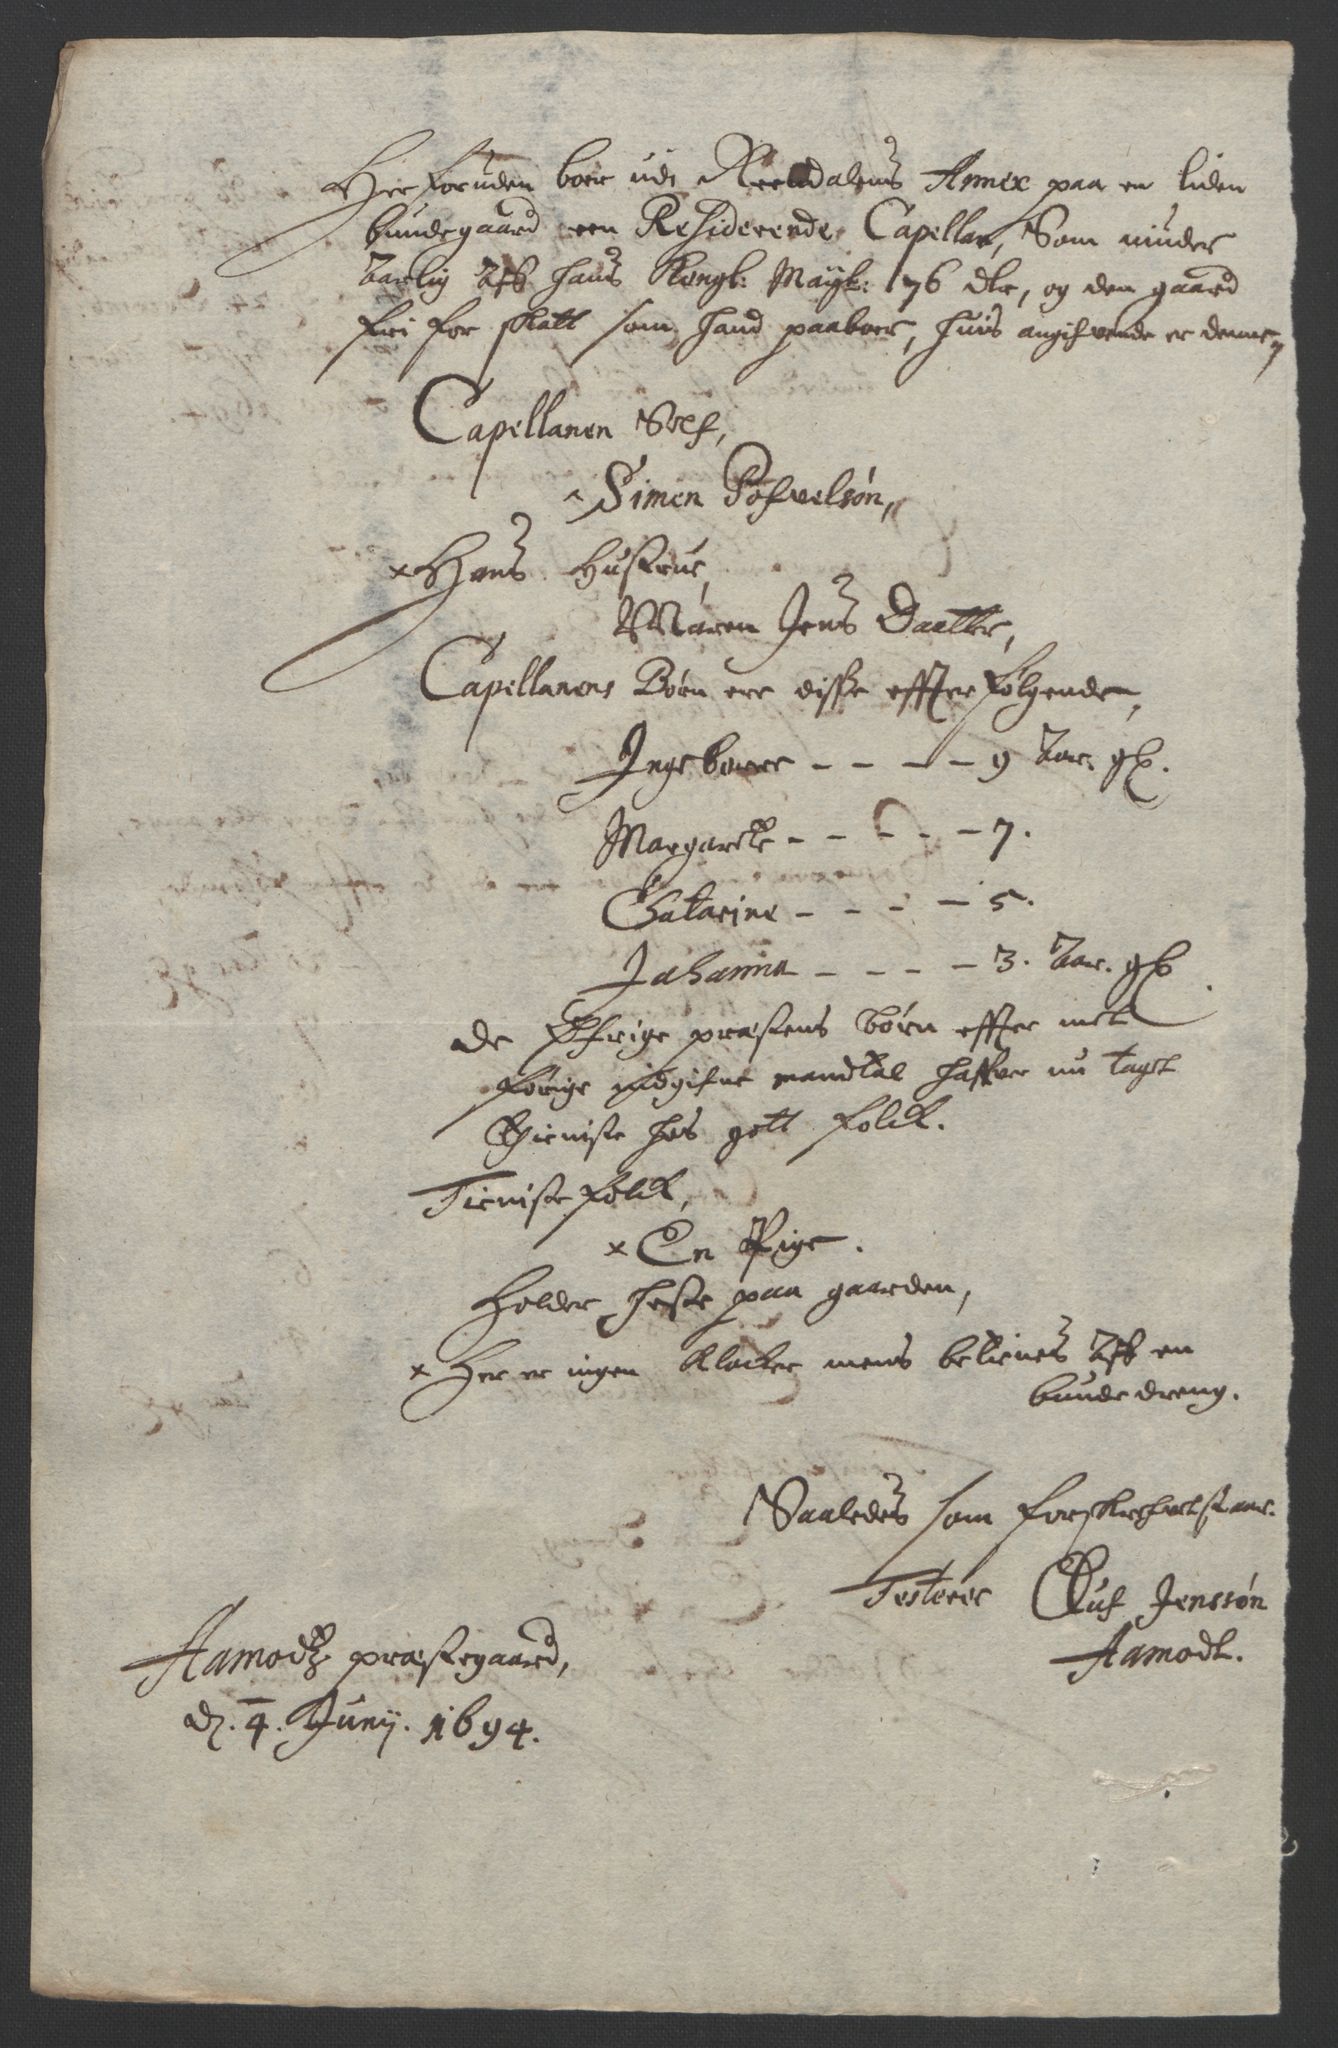 Her foruden boer udi Reendalens Annex paa en liden
bundegaard een Residerende Capellan, Som niuder
Aarlig Aff hans Kongl: Mayt: 76 dlr, og den gaard
fri for skatt som hand paaboer, huis angifvende er denne,
Capellanen Self,
Simen Pofvelsøn,
x Hans Hustrue,
Maren Jens Daatter,
Capellanens Børn ere disse effter følgende,
Ingeborre - - - - 9 Aar. gl.
Margarete - - - - - 7.
Chatarine - - - - 5.
Johanna - - - - 3. Aar. gl.
de Øfrige præstens børn effter met
forige udgifne mandtal haffver nu taget
Thieniste hos gott folck.
Tieniste folck,
x En Pige.
Holder heste paa gaarden,
x Her er ingen Klocker mens betienes Aff en
bundedreng.
Saaledes som forskrefvet staar.
Testerer Oluf Jenssøn
Aamodt.
Aamodtz præstegaard,
d. 4. Junij. 1694.